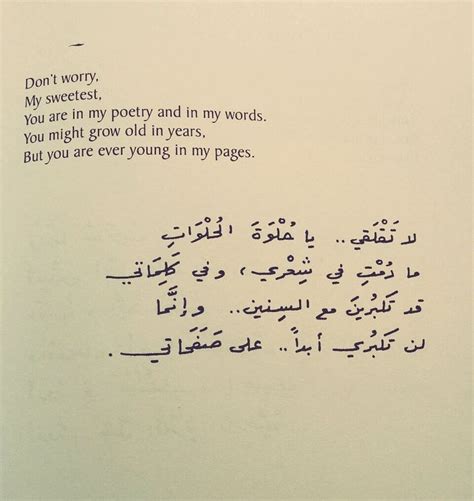 Don't worry,
My sweetest,
You are in my poetry and in my words.
You might grow old in years,
But you are ever young in my pages.
لا تَقْلَقي .. يا حُلْوَةَ الحُلْوَاتِ
ما دُمْتِ في شِعْري ، وفي كَلِمَاتي
قد تَكبُرينَ مع السِنين .. وإنَّما
لن تَكبُري أبداً .. على صَفَحَاتي .